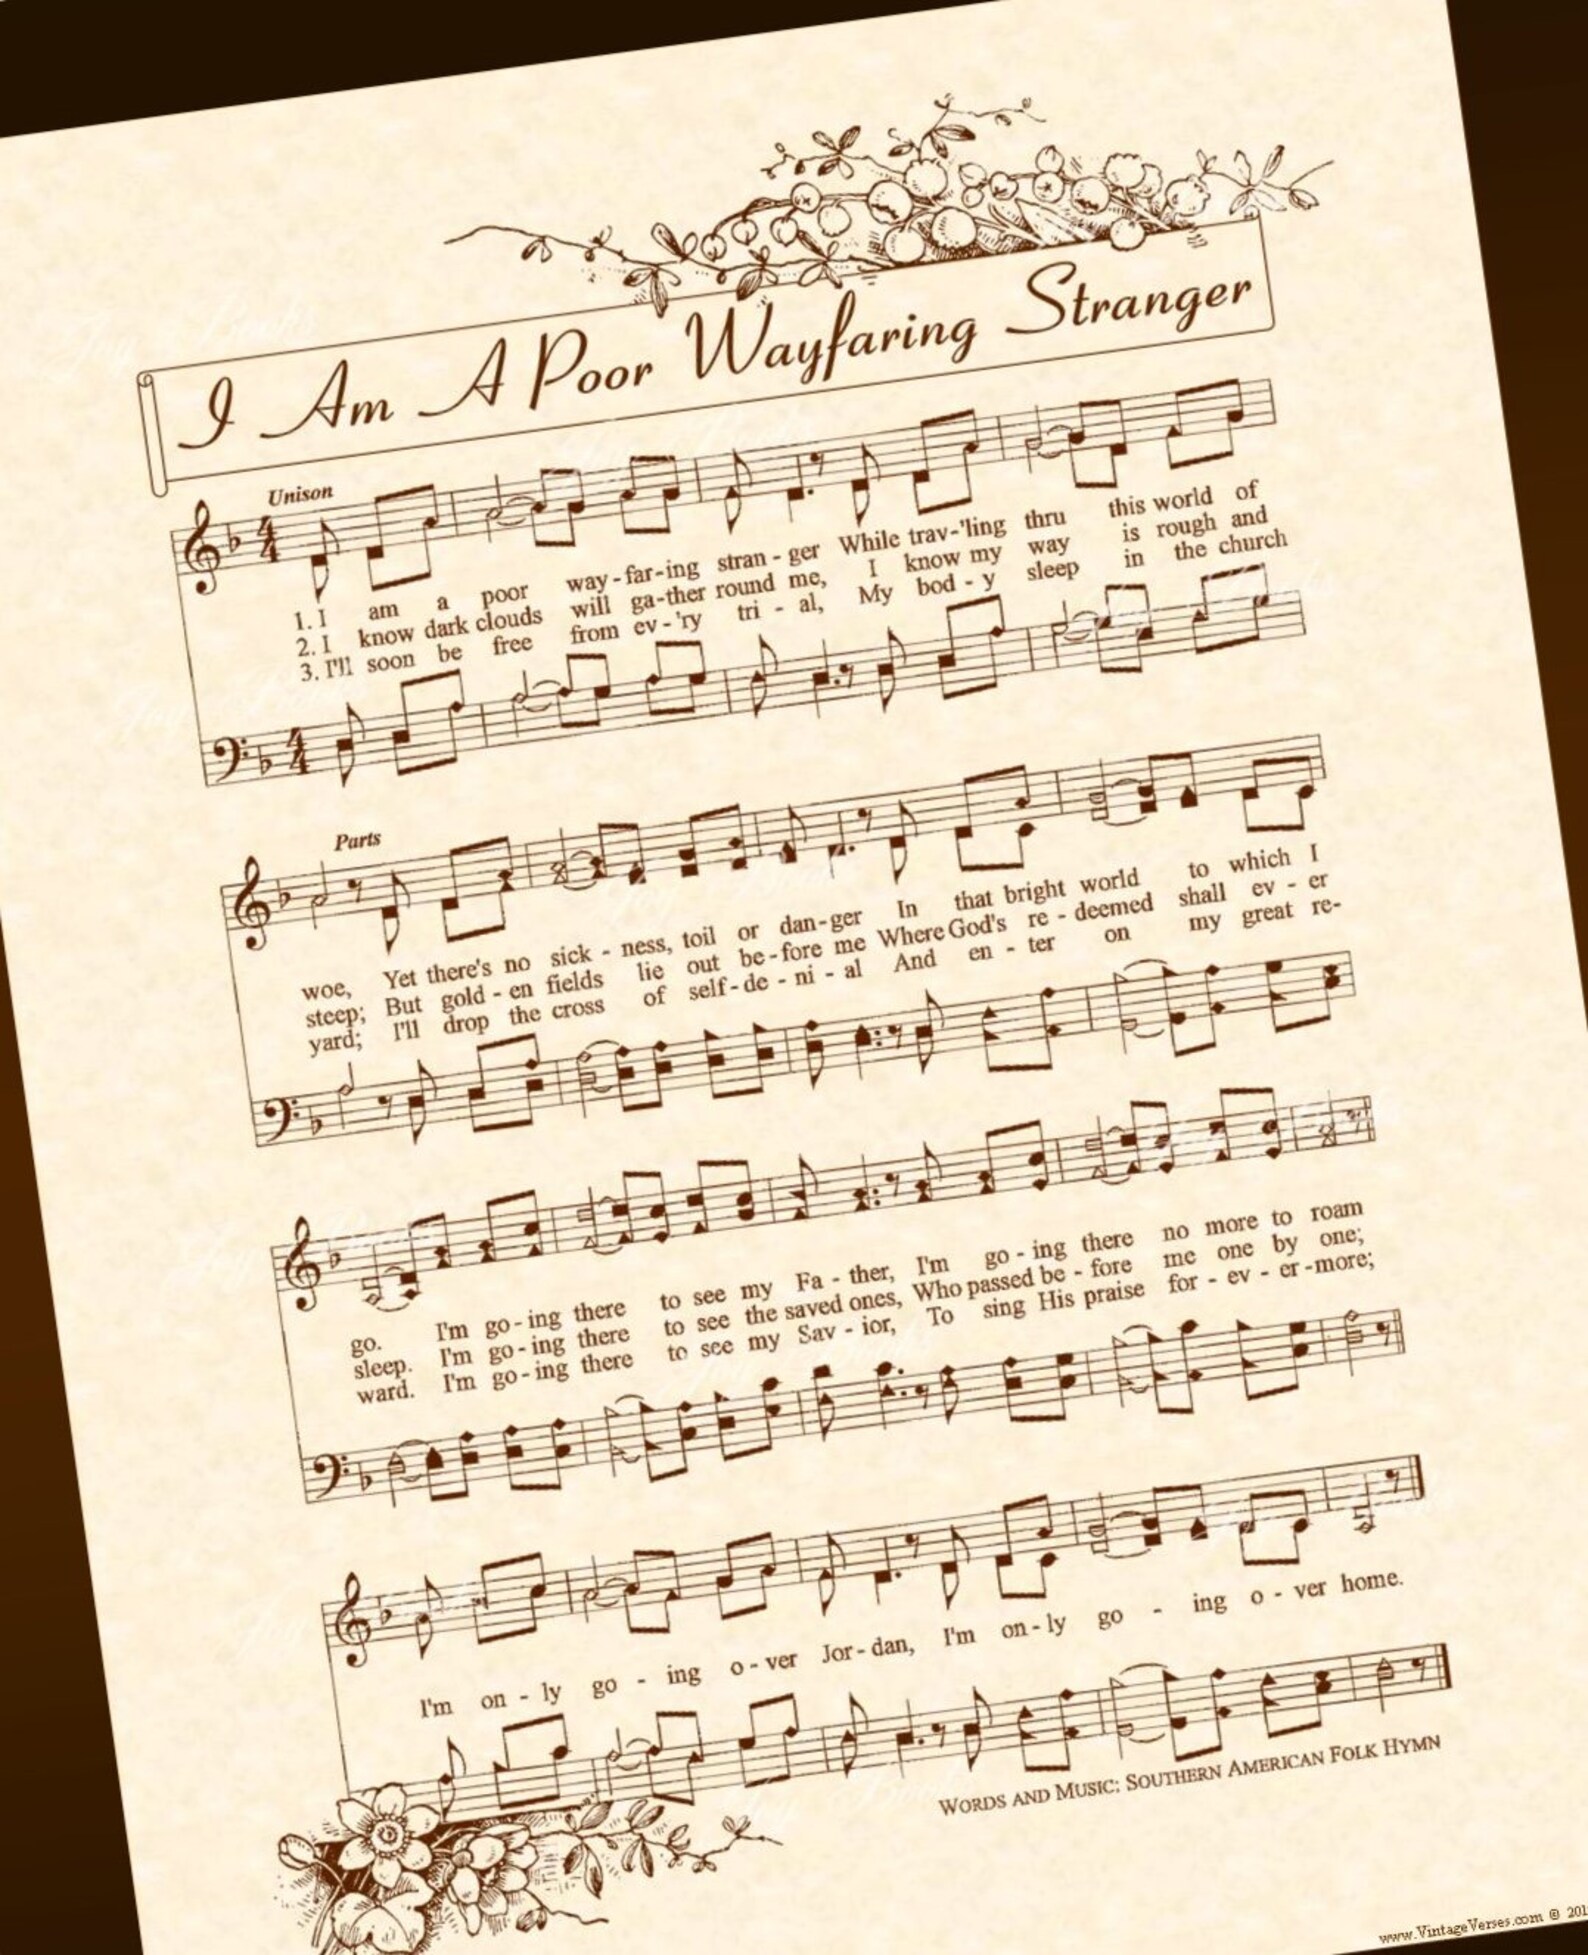 I Am A Poor Wayfaring Stranger
Unison
4
4
1. I am a poor way-far-ing stran-ger While trav-'ling thru this world of
2. I know dark clouds will ga-ther round me, I know my way is rough and
3. I'll soon be free from ev-'ry tri-al, My bod-y sleep in the church
4
4
Parts
woe, Yet there's no sick-ness, toil or dan-ger In that bright world to which I
steep; But gold-en fields lie out be-fore me Where God's re-deemed shall ev-er
yard; I'll drop the cross of self-de-ni-al And en-ter on my great re-
go. I'm go-ing there to see my Fa-ther, I'm go-ing there no more to roam
sleep. I'm go-ing there to see the saved ones, Who passed be-fore me one by one;
ward. I'm go-ing there to see my Sav-ior, To sing His praise for-ev-er-more;
I'm on-ly go-ing o-ver Jor-dan, I'm on-ly go-ing o-ver home.
WORDS AND MUSIC: SOUTHERN AMERICAN FOLK HYMN
www.VintageVerses.com © 201